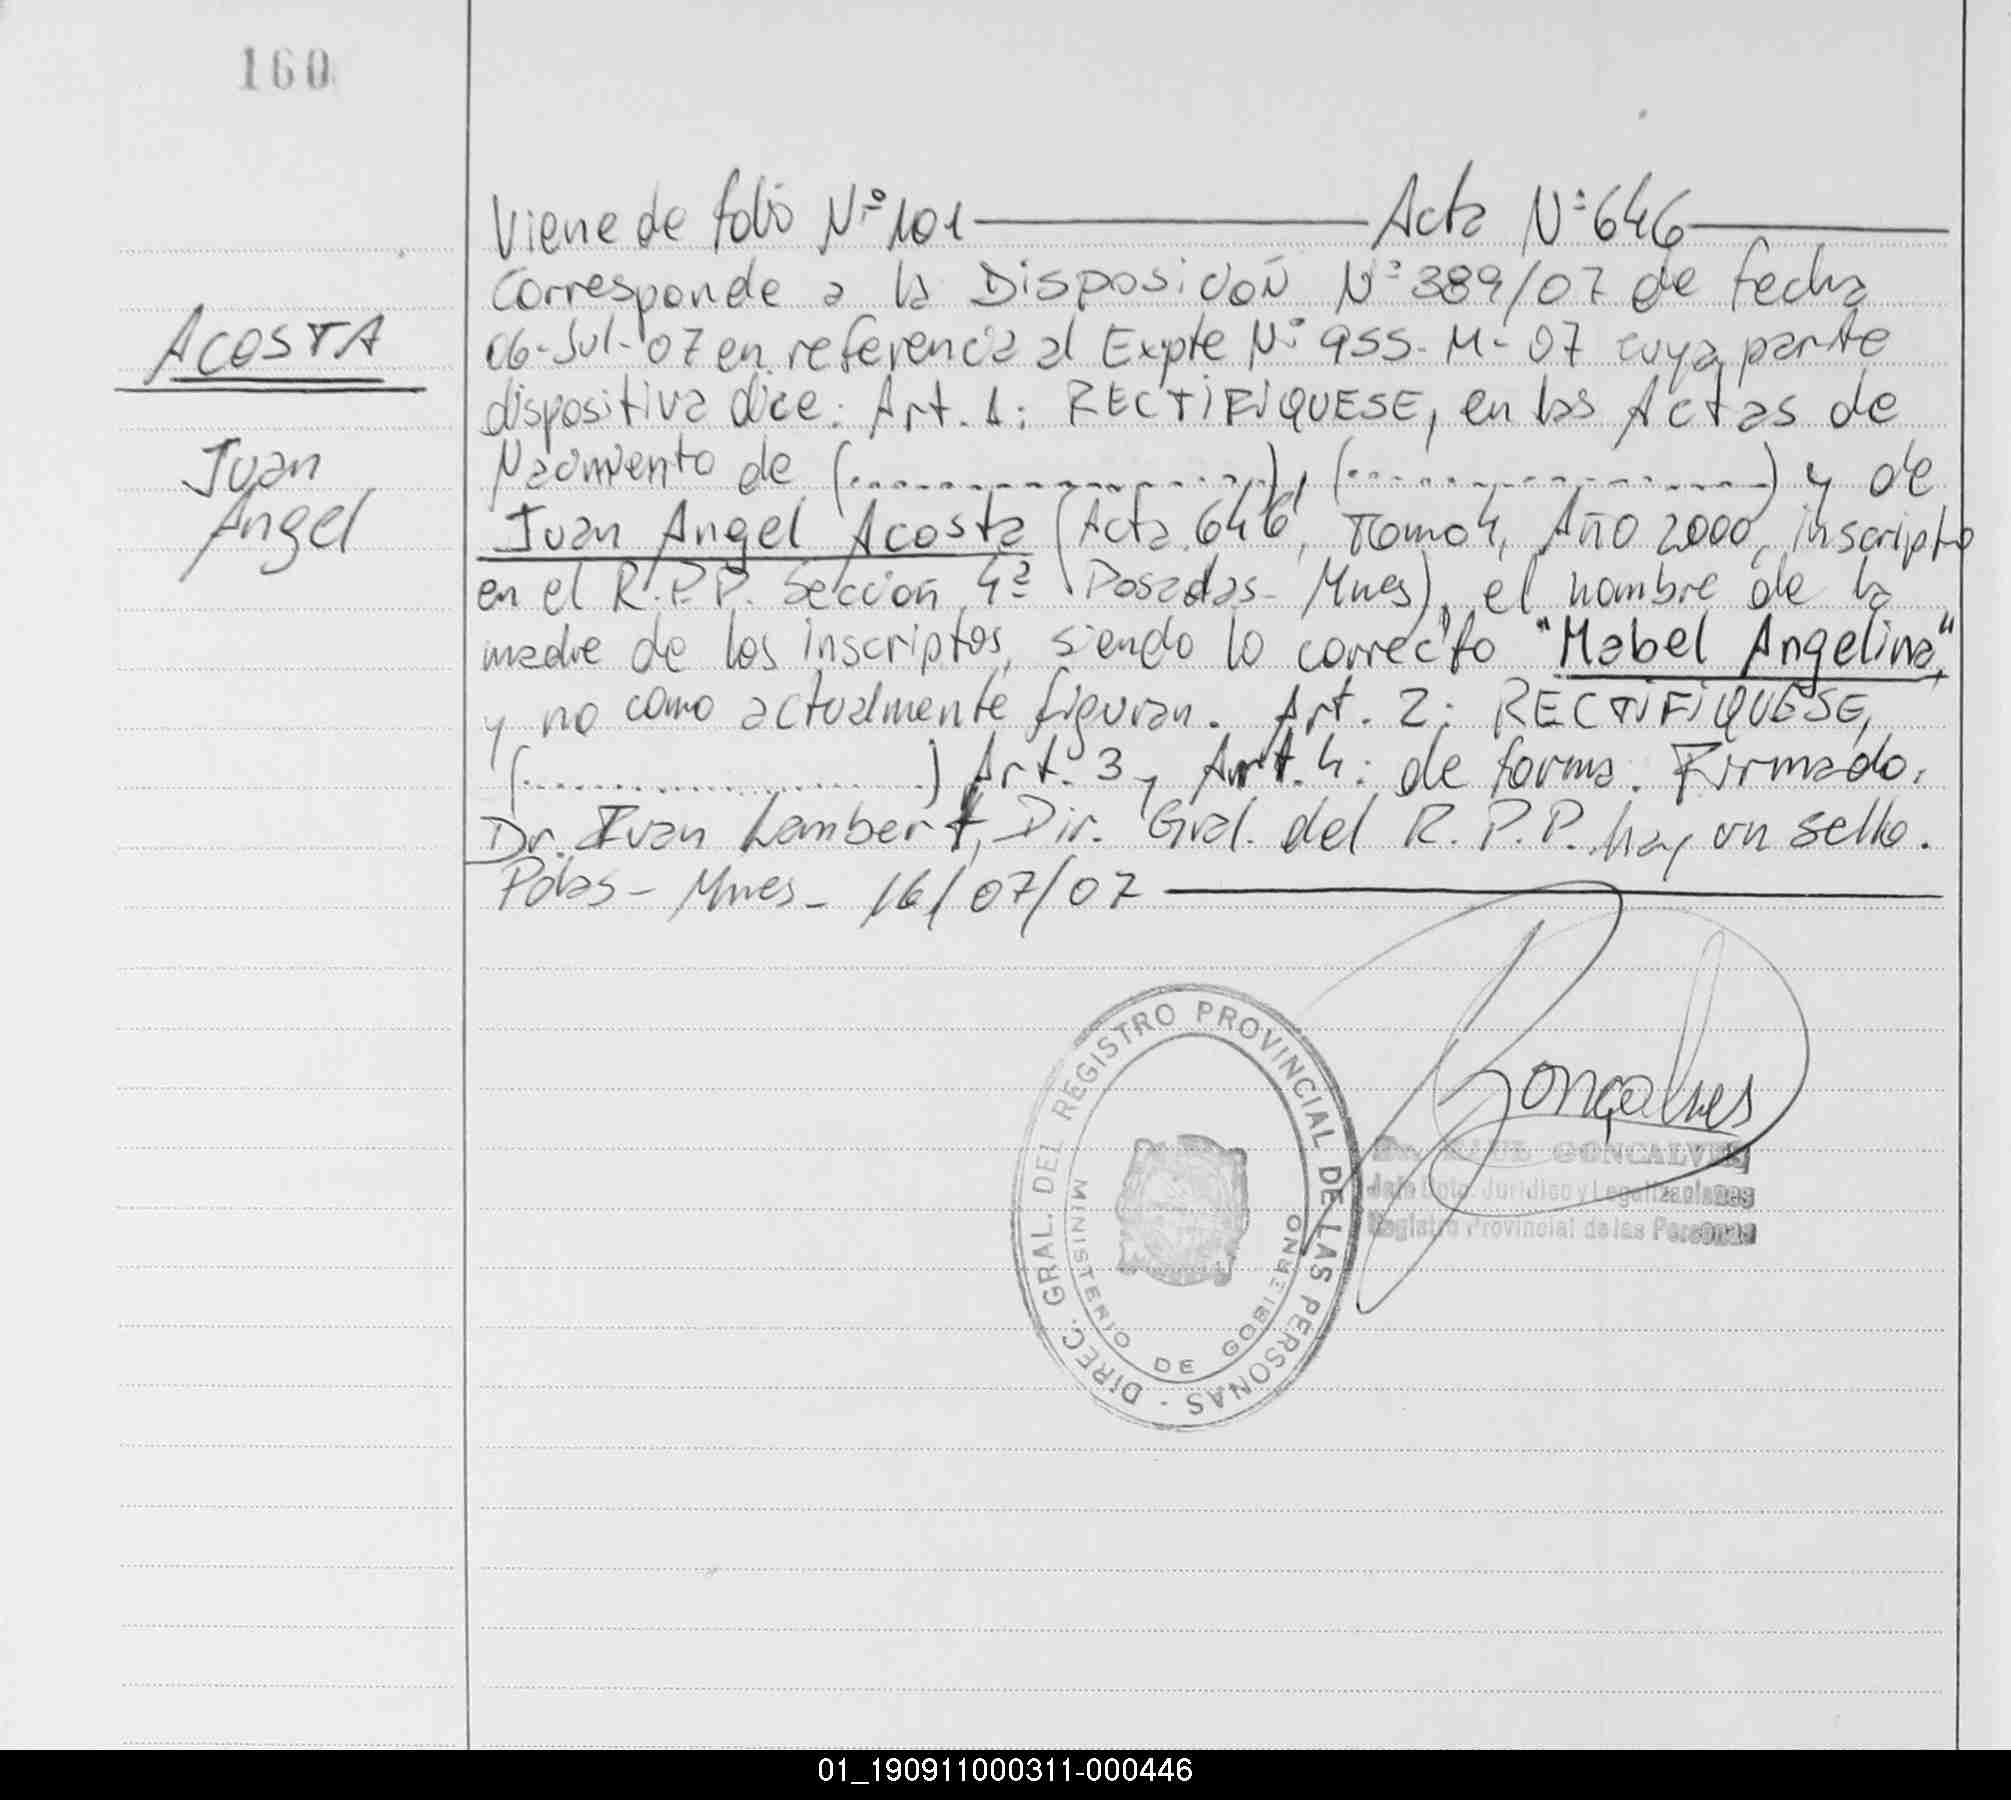 160
ACOSTA
Juan
Angel
Viene de folio Nº 101 Acta Nº 646
Corresponde a la Disposición Nº 389/07 de fecha
06-Jul-07 en referencia al Expte Nº 955-M-07 cuya parte
dispositiva dice: Art. 1: RECTIFIQUESE, en las Actas de
Nacimiento de (..................), (..................) y de
Juan Angel Acosta (Acta 646, Tomo 4, Año 2000, inscripto
en el R.P.P. Sección 4ª Posadas-Mnes), el nombre de la
madre de los inscriptos, siendo lo correcto "Mabel Angelina",
y no como actualmente figuran. Art. 2: RECTIFIQUESE,
(..................) Art. 3 y Art. 4: de forma. Firmado:
Dr. Ivan Lambert, Dir. Gral. del R.P.P. hay un sello.
Pdas - Mnes - 16/07/07
Gonçalves
GONCALVES
Jefe Dpto. Juridico y Legalizaciones
Registro Provincial de las Personas
DIREC. GRAL. DEL REGISTRO PROVINCIAL DE LAS PERSONAS -
MINISTERIO DE GOBIERNO
01_190911000311-000446